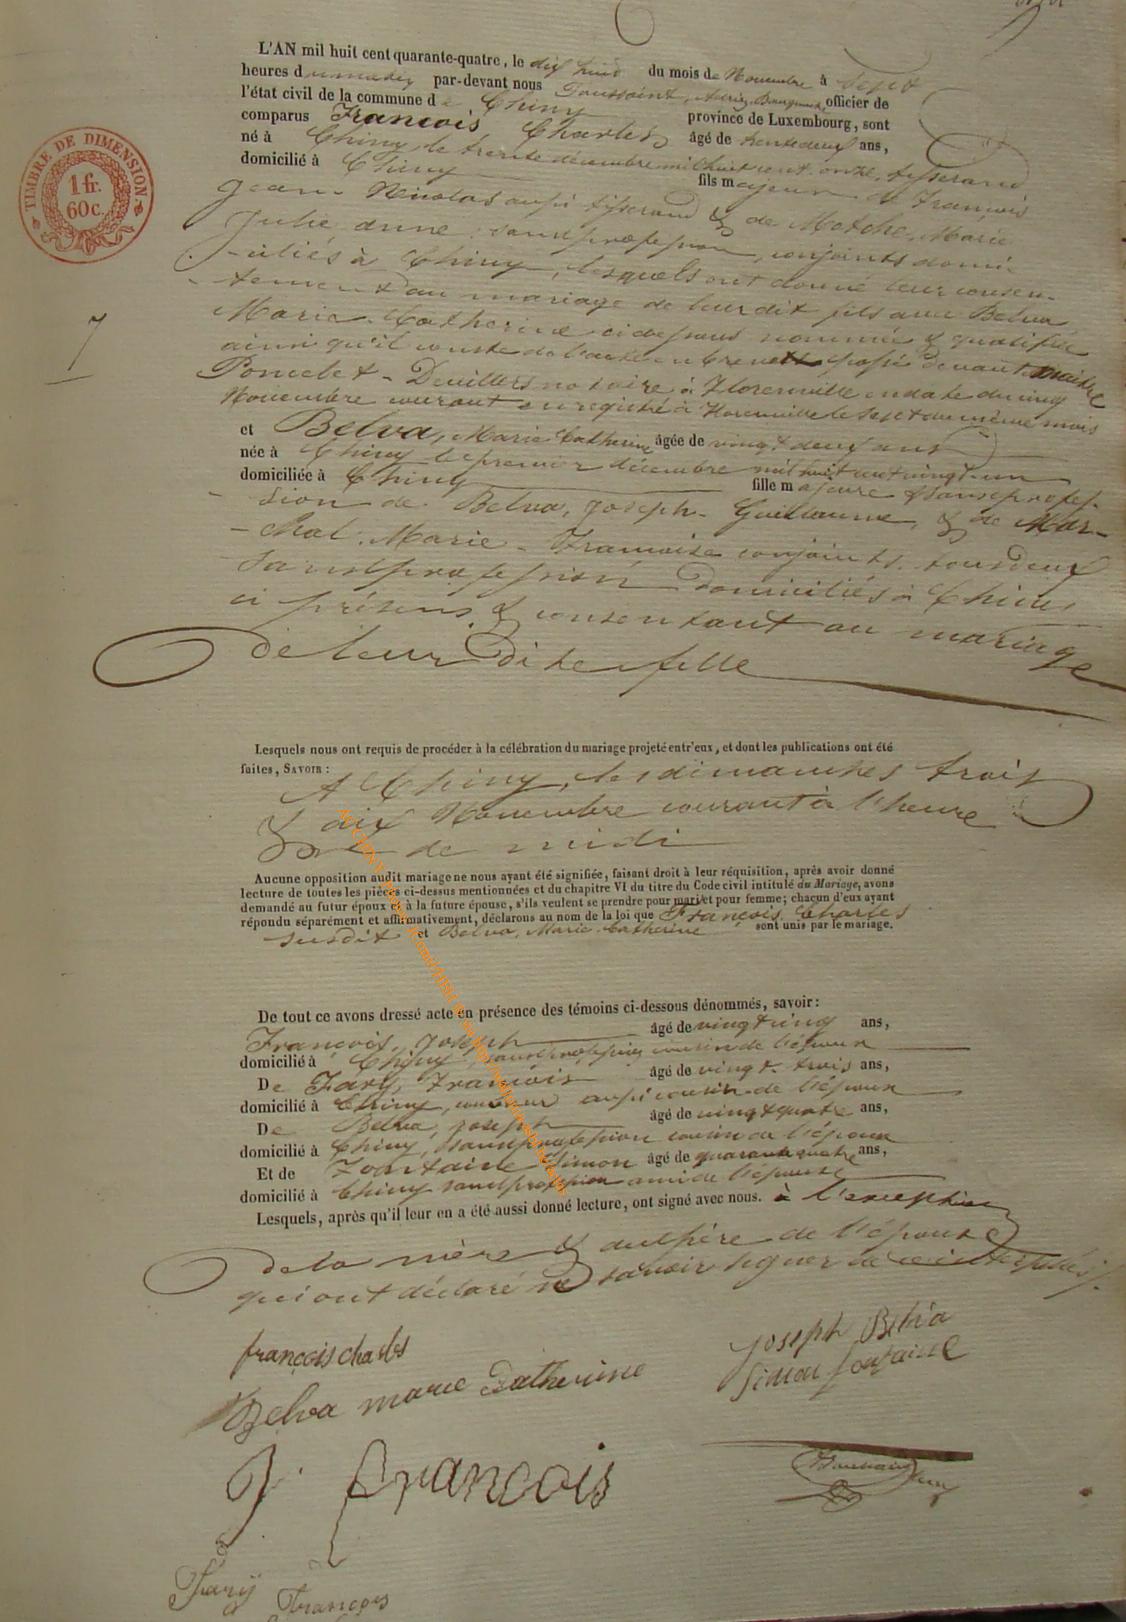 TIMBRE DE DIMENSION.
1 fr.
60 c.
7
L'AN mil huit cent quarante-quatre, le dix huit du mois de Novembre à sept
heures du matin par-devant nous Toussaint, officier de
l'état civil de la commune de Chiny province de Luxembourg, sont
comparus François, Charles âgé de trente deux ans,
né à Chiny, le trente décembre mil huit cent onze, tisserand
domicilié à Chiny fils majeur de François
Jean-Nicolas aussi tisserand & de Motche, Marie
Julie anne, sans profession, conjoints domi-
-ciliés à Chiny, lesquels ont donné leur consen-
-tement au mariage de leur dit fils avec Belva
Marie-Catherine ci dessous nommée & qualifiée
ainsi qu'il conste de l'acte en brevet passé devant maitre
Poncelet-Devillers notaire à Florenville en date du cinq
Novembre courant enregistré à Florenville le sept du même mois
et Belva, Marie Catherine âgée de vingt deux ans
née à Chiny le premier décembre mil huit cent vingt-un
domiciliée à Chiny fille majeure & sans profes-
-sion de Belva, Joseph-Guillaume, & de Mar-
-chal, Marie-Francoise conjoints, tous deux
sans profession domiciliés à Chiny
ci présens & consentant au mariage
de leur dite fille
Lesquels nous ont requis de procéder à la célébration du mariage projeté entr'eux, et dont les publications ont été
faites, SAVOIR :
A Chiny, les dimanches trois
& dix Novembre courant à l'heure
de midi
Aucune opposition audit mariage ne nous ayant été signifiée, faisant droit à leur réquisition, après avoir donné
lecture de toutes les pièces ci-dessus mentionnées et du chapitre VI du titre du Code civil intitulé du Mariage, avons
demandé au futur époux et à la future épouse, s'ils veulent se prendre pour mari et pour femme; chacun d'eux ayant
répondu séparément et affirmativement, déclarons au nom de la loi que François, Charles
susdit et Belva, Marie-Catherine sont unis par le mariage.
De tout ce avons dressé acte en présence des témoins ci-dessous dénommés, savoir :
François, Joseph âgé de vingt cinq ans,
domicilié à Chiny, sans profession cousin de l'époux
De Fary, François âgé de vingt-trois ans,
domicilié à Chiny, aussi cousin de l'époux
De Belva, Joseph âgé de vingt quatre ans,
domicilié à Chiny, sans profession cousin de l'épouse
Et de Fontaine Simon âgé de quarante quatre ans,
domicilié à Chiny sans profession ami de l'épouse
Lesquels, après qu'il leur en a été aussi donné lecture, ont signé avec nous. à l'exception
de la mère & du père de l'épouse
qui ont déclaré ne savoir signer de ce interpellés.
françois charles
Joseph Belva
Simon fontaine
Belva marie Catherine
J. françois
Fary François